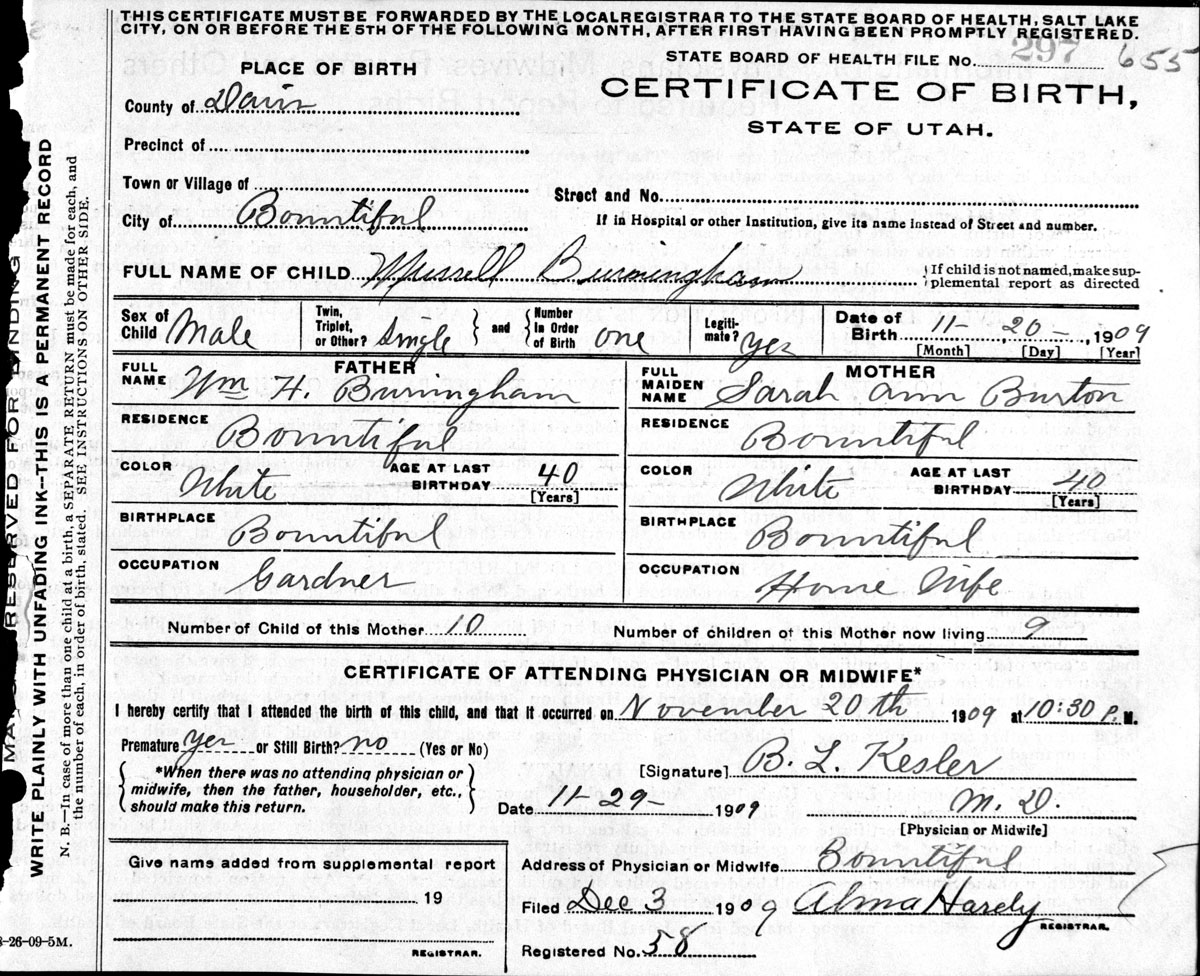 THIS CERTIFICATE MUST BE FORWARDED BY THE LOCAL REGISTRAR TO THE STATE BOARD OF HEALTH, SALT LAKE
CITY, ON OR BEFORE THE 5TH OF THE FOLLOWING MONTH, AFTER FIRST HAVING BEEN PROMPTLY REGISTERED.
STATE BOARD OF HEALTH FILE No. 297 655
PLACE OF BIRTH
CERTIFICATE OF BIRTH,
STATE OF UTAH.
County of Davis
Precinct of
Town or Village of
Street and No.
City of Bountiful
If in Hospital or other Institution, give its name instead of Street and number.
FULL NAME OF CHILD Burningham
If child is not named, make sup-
plemental report as directed
Sex of Child Male
Twin, Triplet, or Other? Single and Number in Order of Birth one
Legiti-mate? yes
Date of Birth 11- 20- 1909
[Month] [Day] [Year]
FATHER
FULL NAME Wm H. Burningham
RESIDENCE Bountiful
COLOR White AGE AT LAST BIRTHDAY 40
[Years]
BIRTHPLACE Bountiful
OCCUPATION Gardner
MOTHER
FULL MAIDEN NAME Sarah Ann Burton
RESIDENCE Bountiful
COLOR White AGE AT LAST BIRTHDAY 40
[Years]
BIRTHPLACE Bountiful
OCCUPATION Home Wife
Number of Child of this Mother 10 Number of children of this Mother now living 9
CERTIFICATE OF ATTENDING PHYSICIAN OR MIDWIFE*
I hereby certify that I attended the birth of this child, and that it occurred on November 20th 1909 at 10:30 P.M.
Premature yes or Still Birth? no (Yes or No)
*When there was no attending physician or
midwife, then the father, householder, etc.,
should make this return.
[Signature] B. L. Kesler
Date 11-29- 1909 M.D.
[Physician or Midwife]
Give name added from supplemental report
19
REGISTRAR.
Address of Physician or Midwife Bountiful
Filed Dec 3 1909 Alma Hardy
REGISTRAR.
Registered No. 58
8-26-09-5M.
RESERVED FOR
WRITE PLAINLY WITH UNFADING INK--THIS IS A PERMANENT RECORD
N. B.—In case of more than one child at a birth, a SEPARATE RETURN must be made for each, and
the number of each, in order of birth, stated. SEE INSTRUCTIONS ON OTHER SIDE.